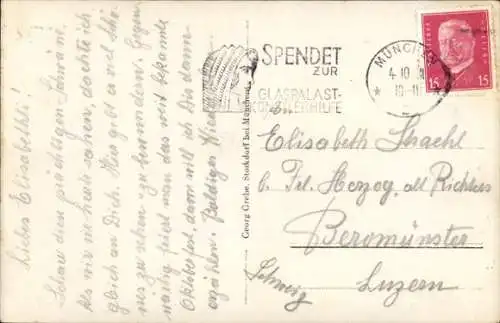 Liebes Elisabethli!
Schau diese prächtigen Schwäne.
Als wir sie heute sahen, dachte ich
gleich an Dich. Hier gibt es viel Schö-
nes zu sehen & zu bewundern. Gegen-
wärtig feiert man das weit bekannte
Oktoberfest, davon will ich Dir dann
erzählen. Baldiges Wie
Georg Grebe, Stockdorf bei München
SPENDET
ZUR
GLASPALAST-
KÜNSTLERHILFE
MÜNCH
4.10.
10-11
DEUTSCHES REICH
15 15
Elisabeth Strachl
b. Frl. Herzog, alt Richters
Beromünster
Luzern
Schweiz